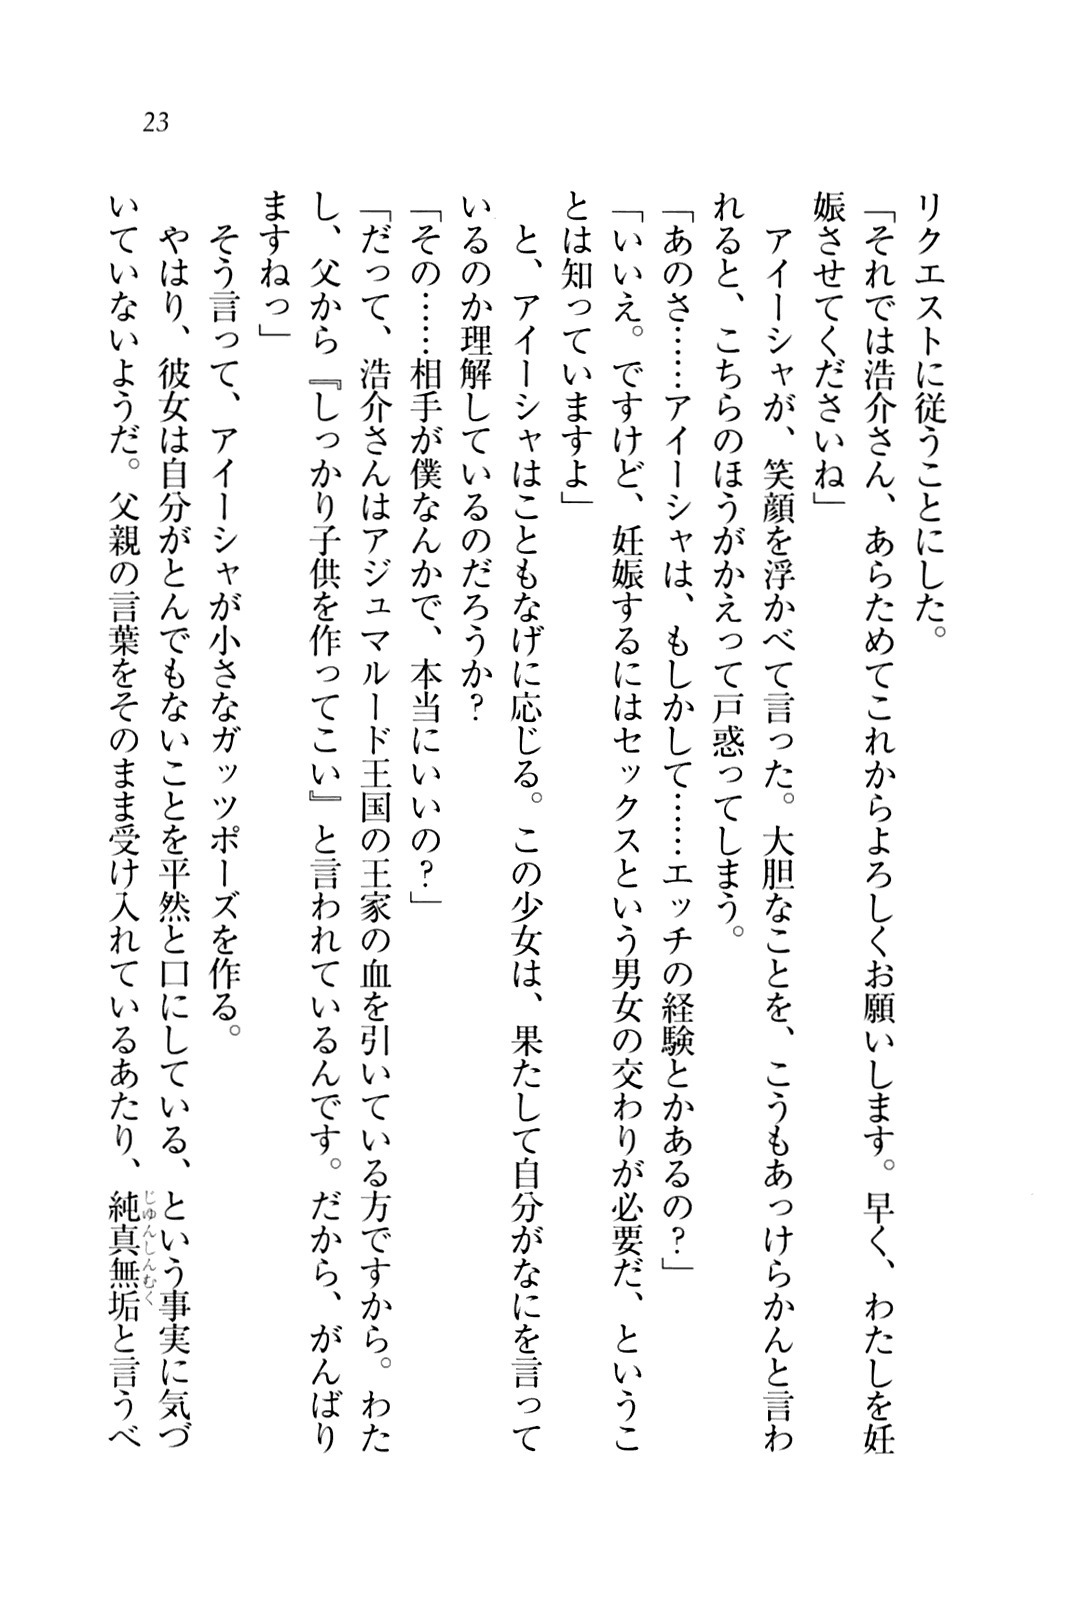 23
リクエストに従うことにした。
「それでは浩介さん、あらためてこれからよろしくお願いします。早く、わたしを妊
娠させてくださいね」
アイーシャが、笑顔を浮かべて言った。大胆なことを、こうもあっけらかんと言わ
れると、こちらのほうがかえって戸惑ってしまう。
「あのさ……アイーシャは、もしかして……エッチの経験とかあるの？」
「いいえ。ですけど、妊娠するにはセックスという男女の交わりが必要だ、というこ
とは知っていますよ」
と、アイーシャはこともなげに応じる。この少女は、果たして自分がなにを言って
いるのか理解しているのだろうか？
「その……相手が僕なんかで、本当にいいの？」
「だって、浩介さんはアジュマルード王国の王家の血を引いている方ですから。わた
し、父から『しっかり子供を作ってこい』と言われているんです。だから、がんばり
ますねっ」
そう言って、アイーシャが小さなガッツポーズを作る。
やはり、彼女は自分がとんでもないことを平然と口にしている、という事実に気づ
いていないようだ。父親の言葉をそのまま受け入れているあたり、純真無垢と言うべ
じゅんしんむく